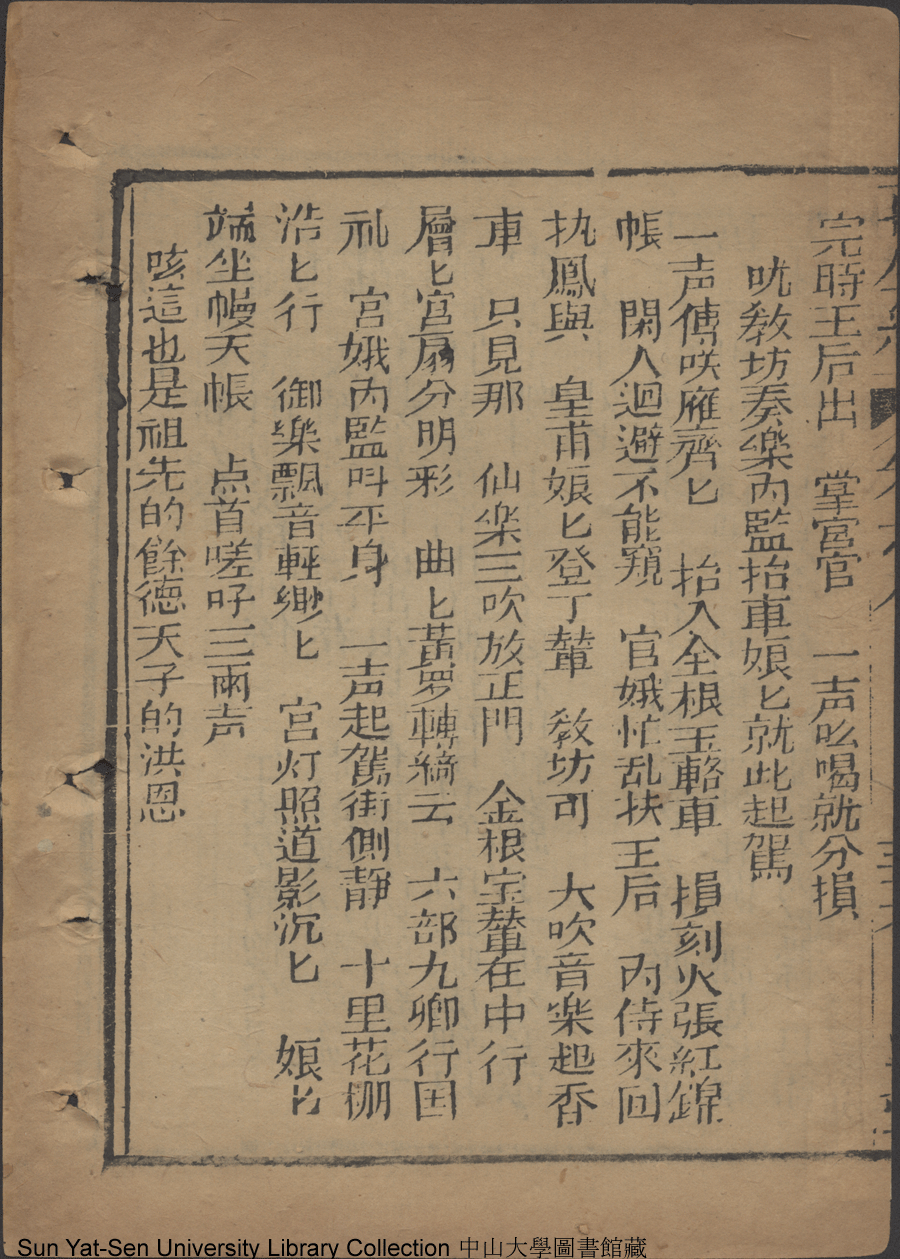 完時王后出　掌宮官　一声吆喝就分損
吮教坊奏樂内監抬車娘匕就此起駕
一声傳咲雁齊匕　抬入全根玉輅車　損刻火張紅錦
帳　閑人迴避不能窺　官娥忙乱扶王后　内侍來回
执鳳與　皇甫娘匕登丁輦　教坊司　大吹音樂起香
車　只見那　仙楽三吹放正門　金根宝輦在中行
層匕宮扇分明彩　曲匕黃罗轉綺云　六部九卿行国
礼　宮娥内監叫平身　一声起駕街側静　十里花棚
浩匕行　御樂飄音輕匕　宮灯照道影沉匕　娘匕
端坐幔天帳　点首嗟吁三兩声
咳這也是祖先的餘德天子的洪恩
Sun Yat-Sen University Library Collection 中山大學圖書館藏